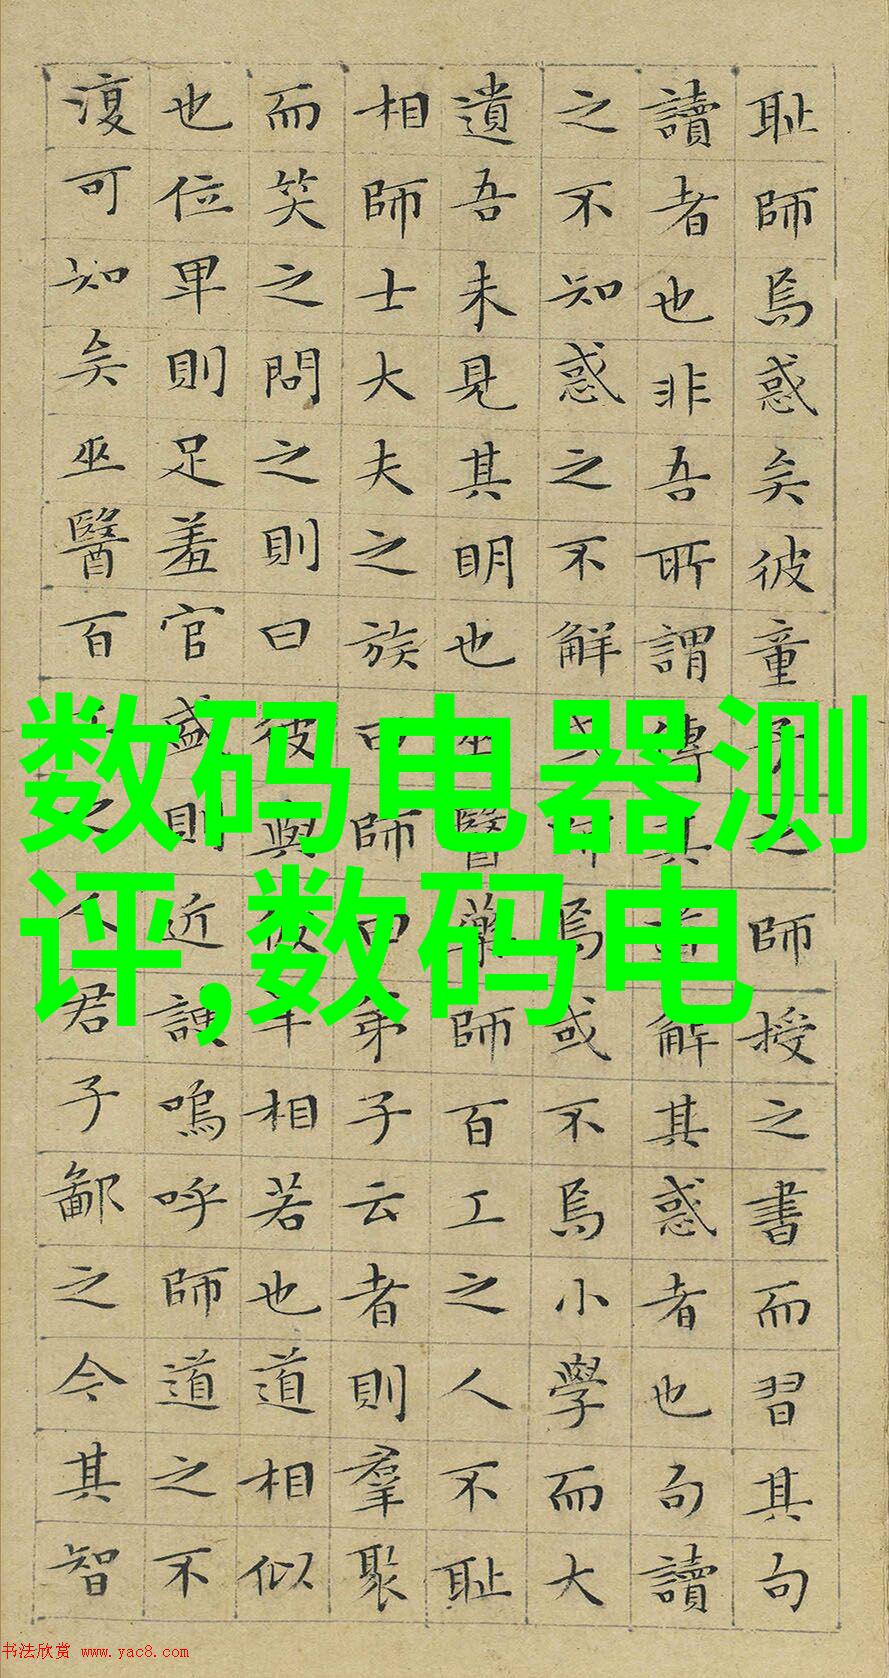 耻師焉惑矣彼童子之師授之書而習其句
讀者也非吾所謂傳其道解其惑者也句讀
之不知惑之不解或師焉或不焉小學而大
遺吾未見其明也巫醫藥師百工之人不耻
相師士大夫之族曰師曰弟子云者則羣聚
而笑之問之則曰彼與彼年相若也道相似
也位卑則足羞官盛則近諛嗚呼師道之不
復可知矣巫醫百工之人君子鄙之今其智
数码电器测
评,数码电
书法欣赏 www.yac8.com